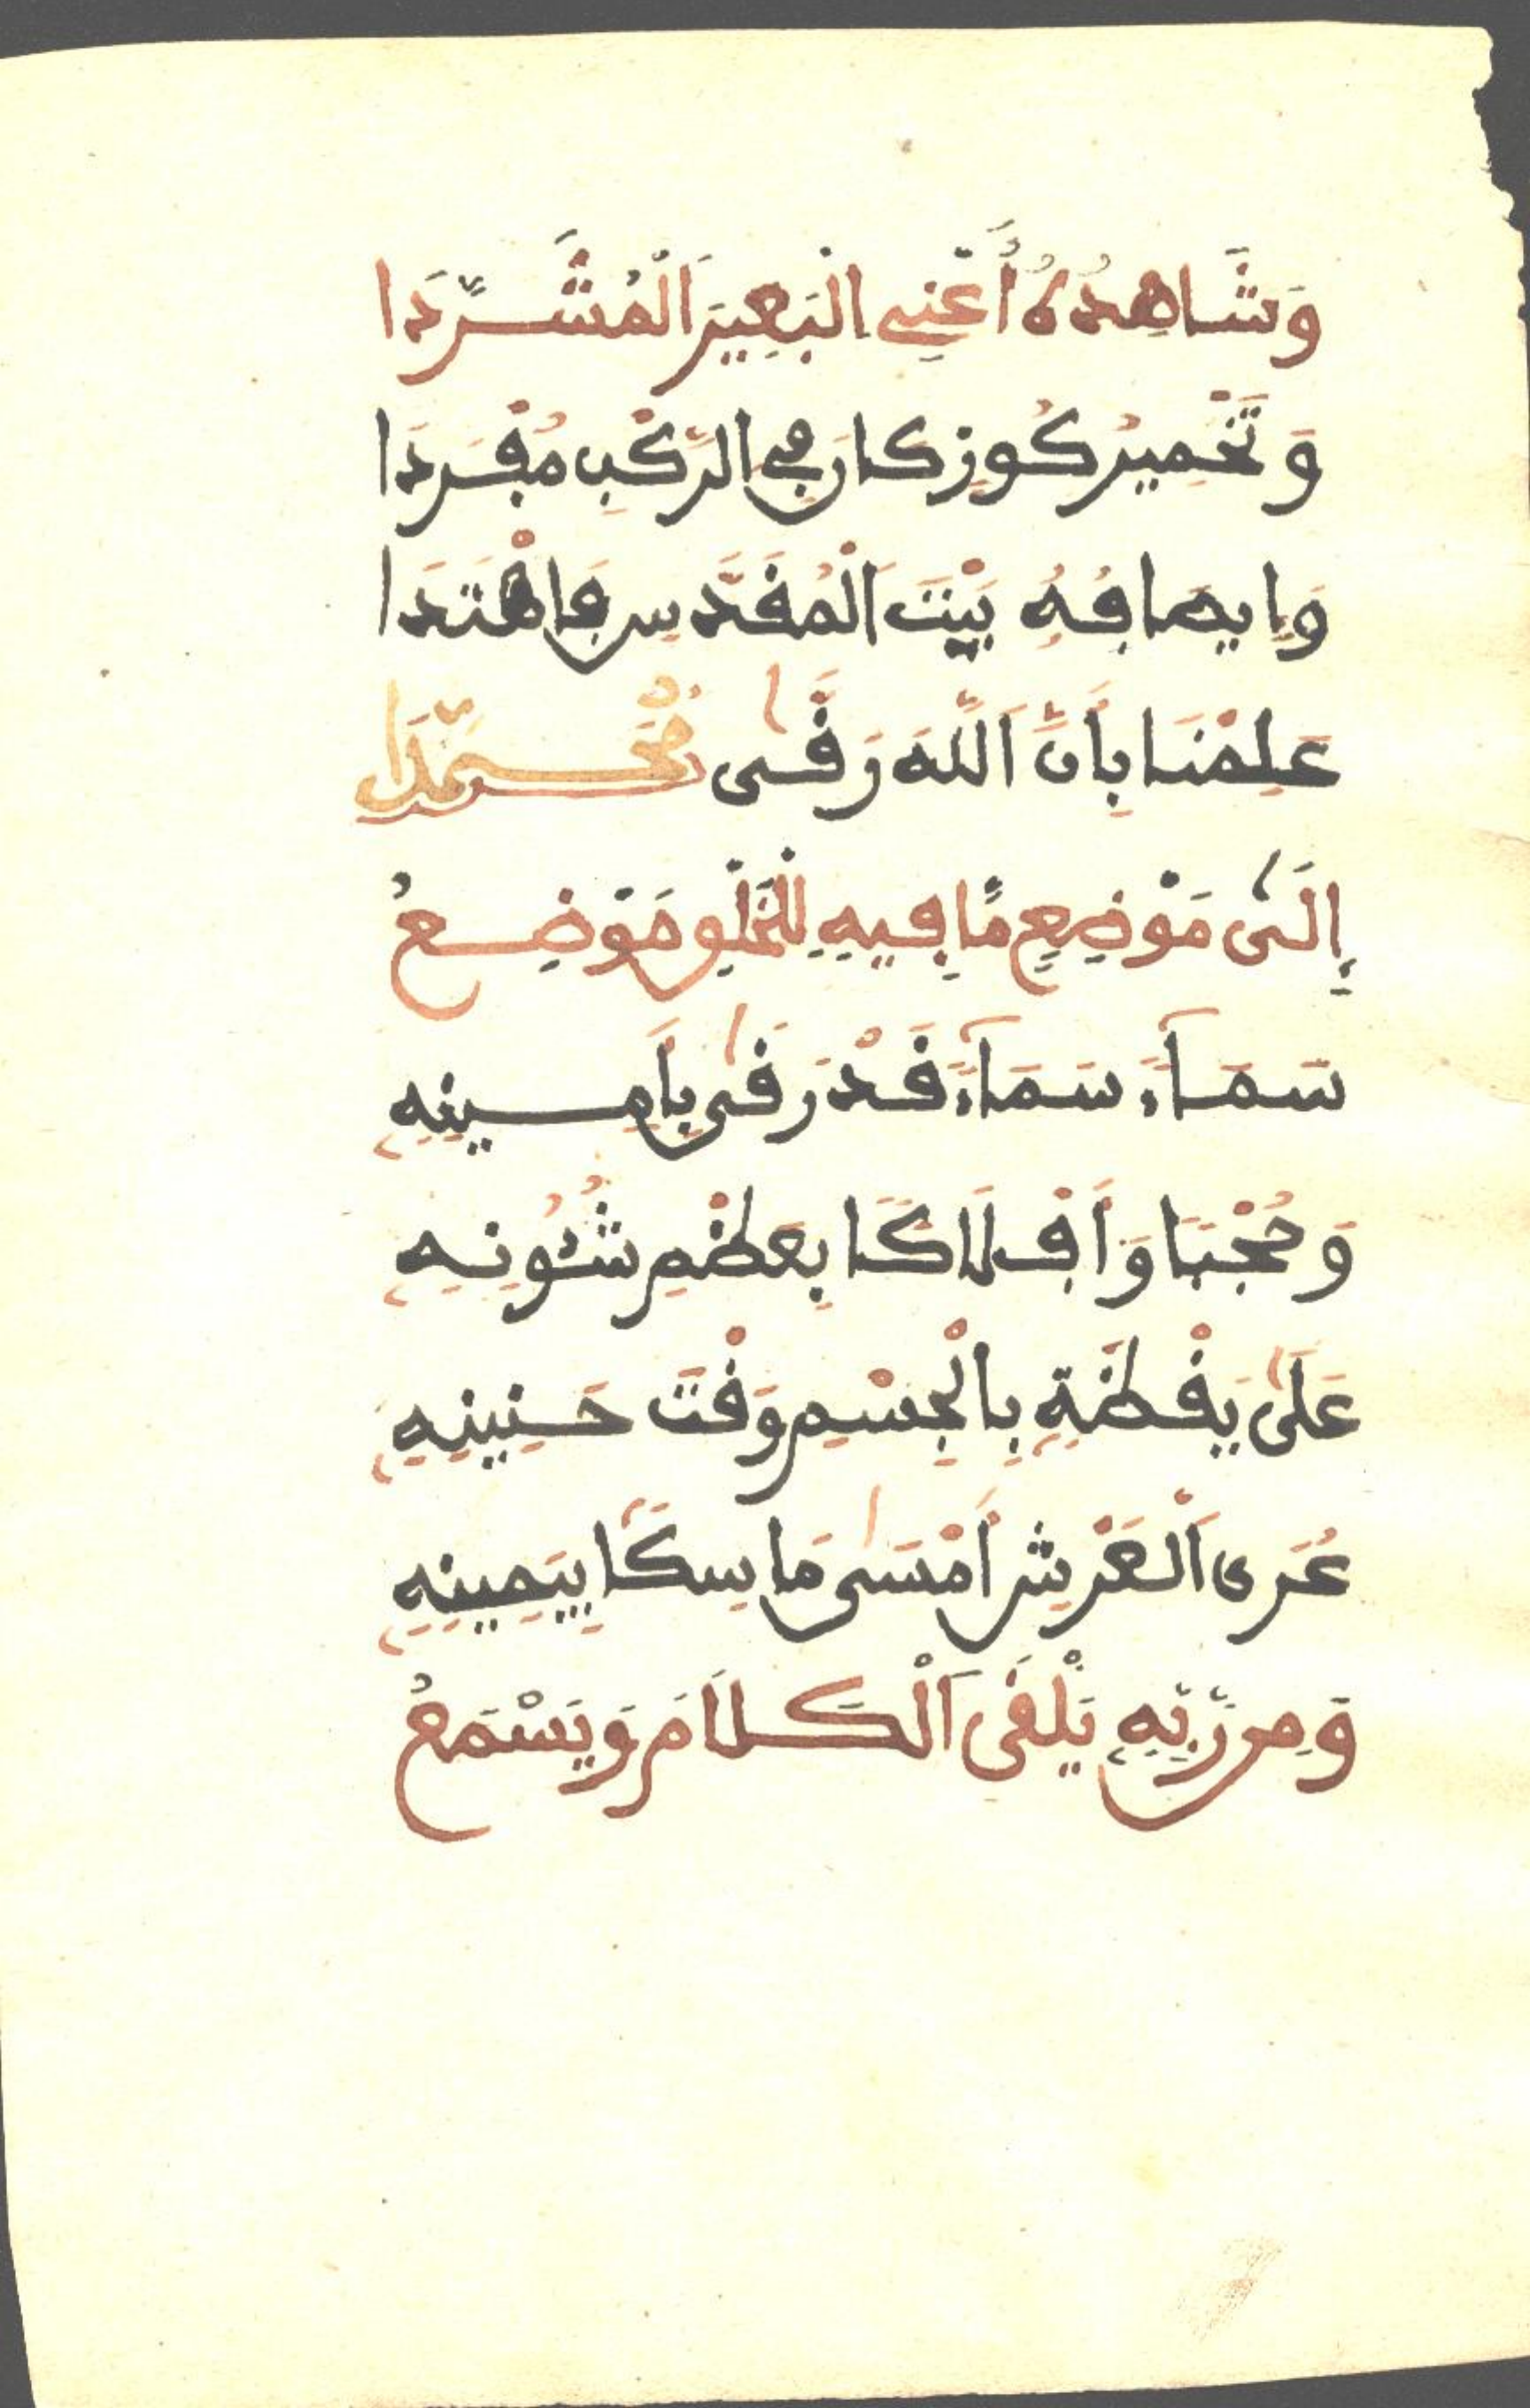 وَشَاهِدُهُ أَعْنِي الْبَعِيرَ الْمُشَرَّدَا
وَتَخْمِيرُ كُوزٍ كَانَ فِي الرَّكْبِ مُفْرَدَا
وَإِيصَافُهُ بَيْتَ الْمُقَدَّسِ فَاهْتَدَا
عَلِمْنَا بِأَنَّ اللَّهَ رَقَّى مُحَمَّدًا
إِلَى مَوْضِعٍ مَّا فِيهِ لِلْخَلْقِ مَوْضِعُ
سَمَاءً سَمَاءً قَدْ رَقَى بِأَمِينِهِ
وَحُجْبًا وَأَفْلَاكًا بِعَظْمِ شُئُونِهِ
عَلَى يَقْظَةٍ بِالْجِسْمِ وَقْتَ حَنِينِهِ
عُرَى الْعَرْشِ أَمْسَى مَاسِكًا بِيَمِينِهِ
وَمِن رَّبِّهِ يَلْقَى الْكَلَامَ وَيَسْمَعُ